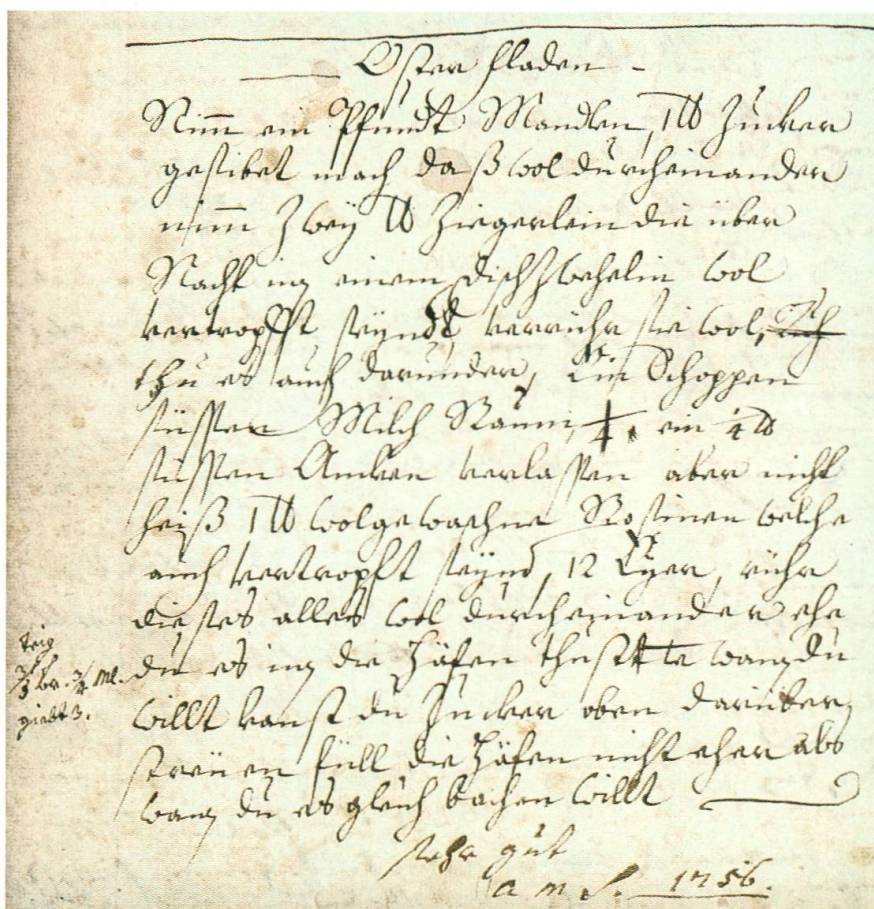 Oster fladen
Nimm ein Pfundt Mandlen, 1 lb Zucker
gestibet mach daß wol durcheinander
nimm Zwey lb Ziegerlein die über
Nacht in einem Dischzwehelin wol
vertropfft seynd verrühr sie wol,
thu es auch darunder, Ein Schoppen
süssen Milch Raum, ein 1/4 lb
süssen Ancken verlassen aber nicht
heiß 1 lb wolgewaschne Rosinen welche
auch vertropft seynd, 12 Eyer, rühr
dieses alles wol durcheinander ehe
du es in die Häfen thust wan du
willt kanst du Zucker oben darüber
streüen füll die Häfen nicht eher als
wan du es gleich bachen willt
sehr gut
a m S. 1756.
Teig
giebt 3.